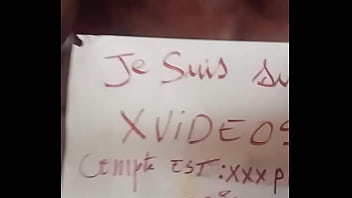 Je Suis
XVIDEOS
Compte EST: XXX P